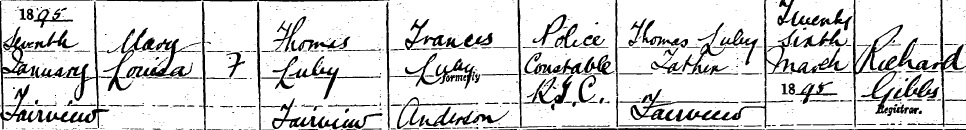 1895
Seventh
January
Fairview
Mary
Louisa
F
Thomas
Luby
Fairview
Frances
Luby
formerly
Anderson
Police
Constable
R.I.C.
Thomas Luby
Father
Fairview
Twenty
sixth
March
1895
Richard
Gibbs
Registrar.